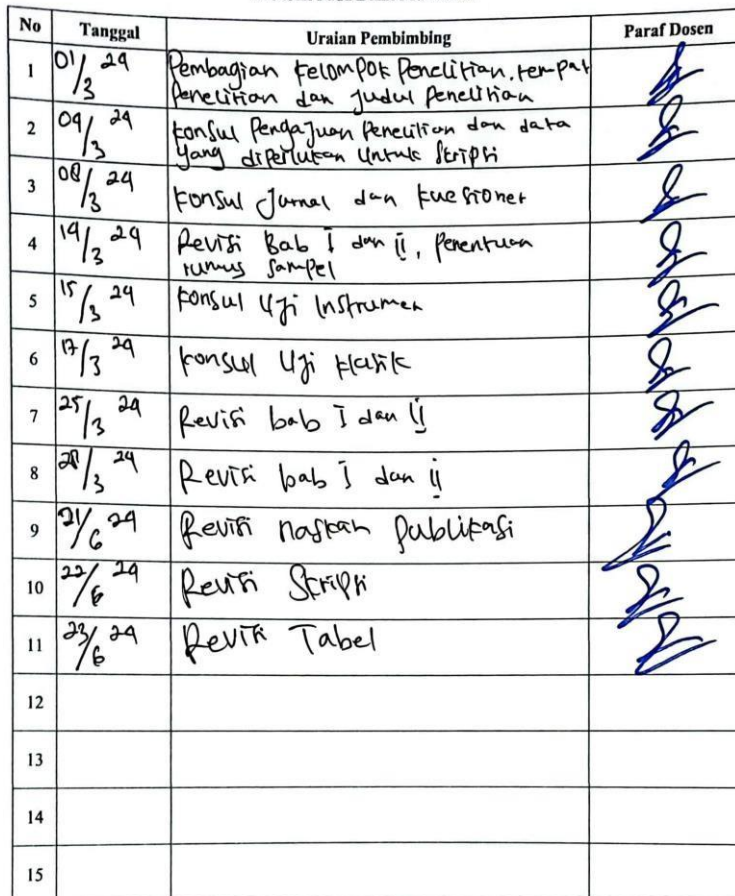 No Tanggal Uraian Pembimbing Paraf Dosen
1 01/3 24 Pembagian Kelompok Penelitian, tempat
Penelitian dan Judul Penelitian
2 04/3 24 Konsul Pengajuan Penelitian dan data
yang diperlukan Untuk Skripsi
3 08/3 24 Konsul Jurnal dan Kuesioner
4 14/3 24 Revisi Bab I dan II, Penentuan
rumus Sampel
5 15/3 24 Konsul Uji Instrumen
6 17/3 24 Konsul Uji Klasik
7 25/3 24 Revisi bab I dan II
8 28/3 24 Revisi bab I dan II
9 21/6 24 Revisi naskah Publikasi
10 22/6 24 Revisi Skripsi
11 23/6 24 Revisi Tabel
12
13
14
15